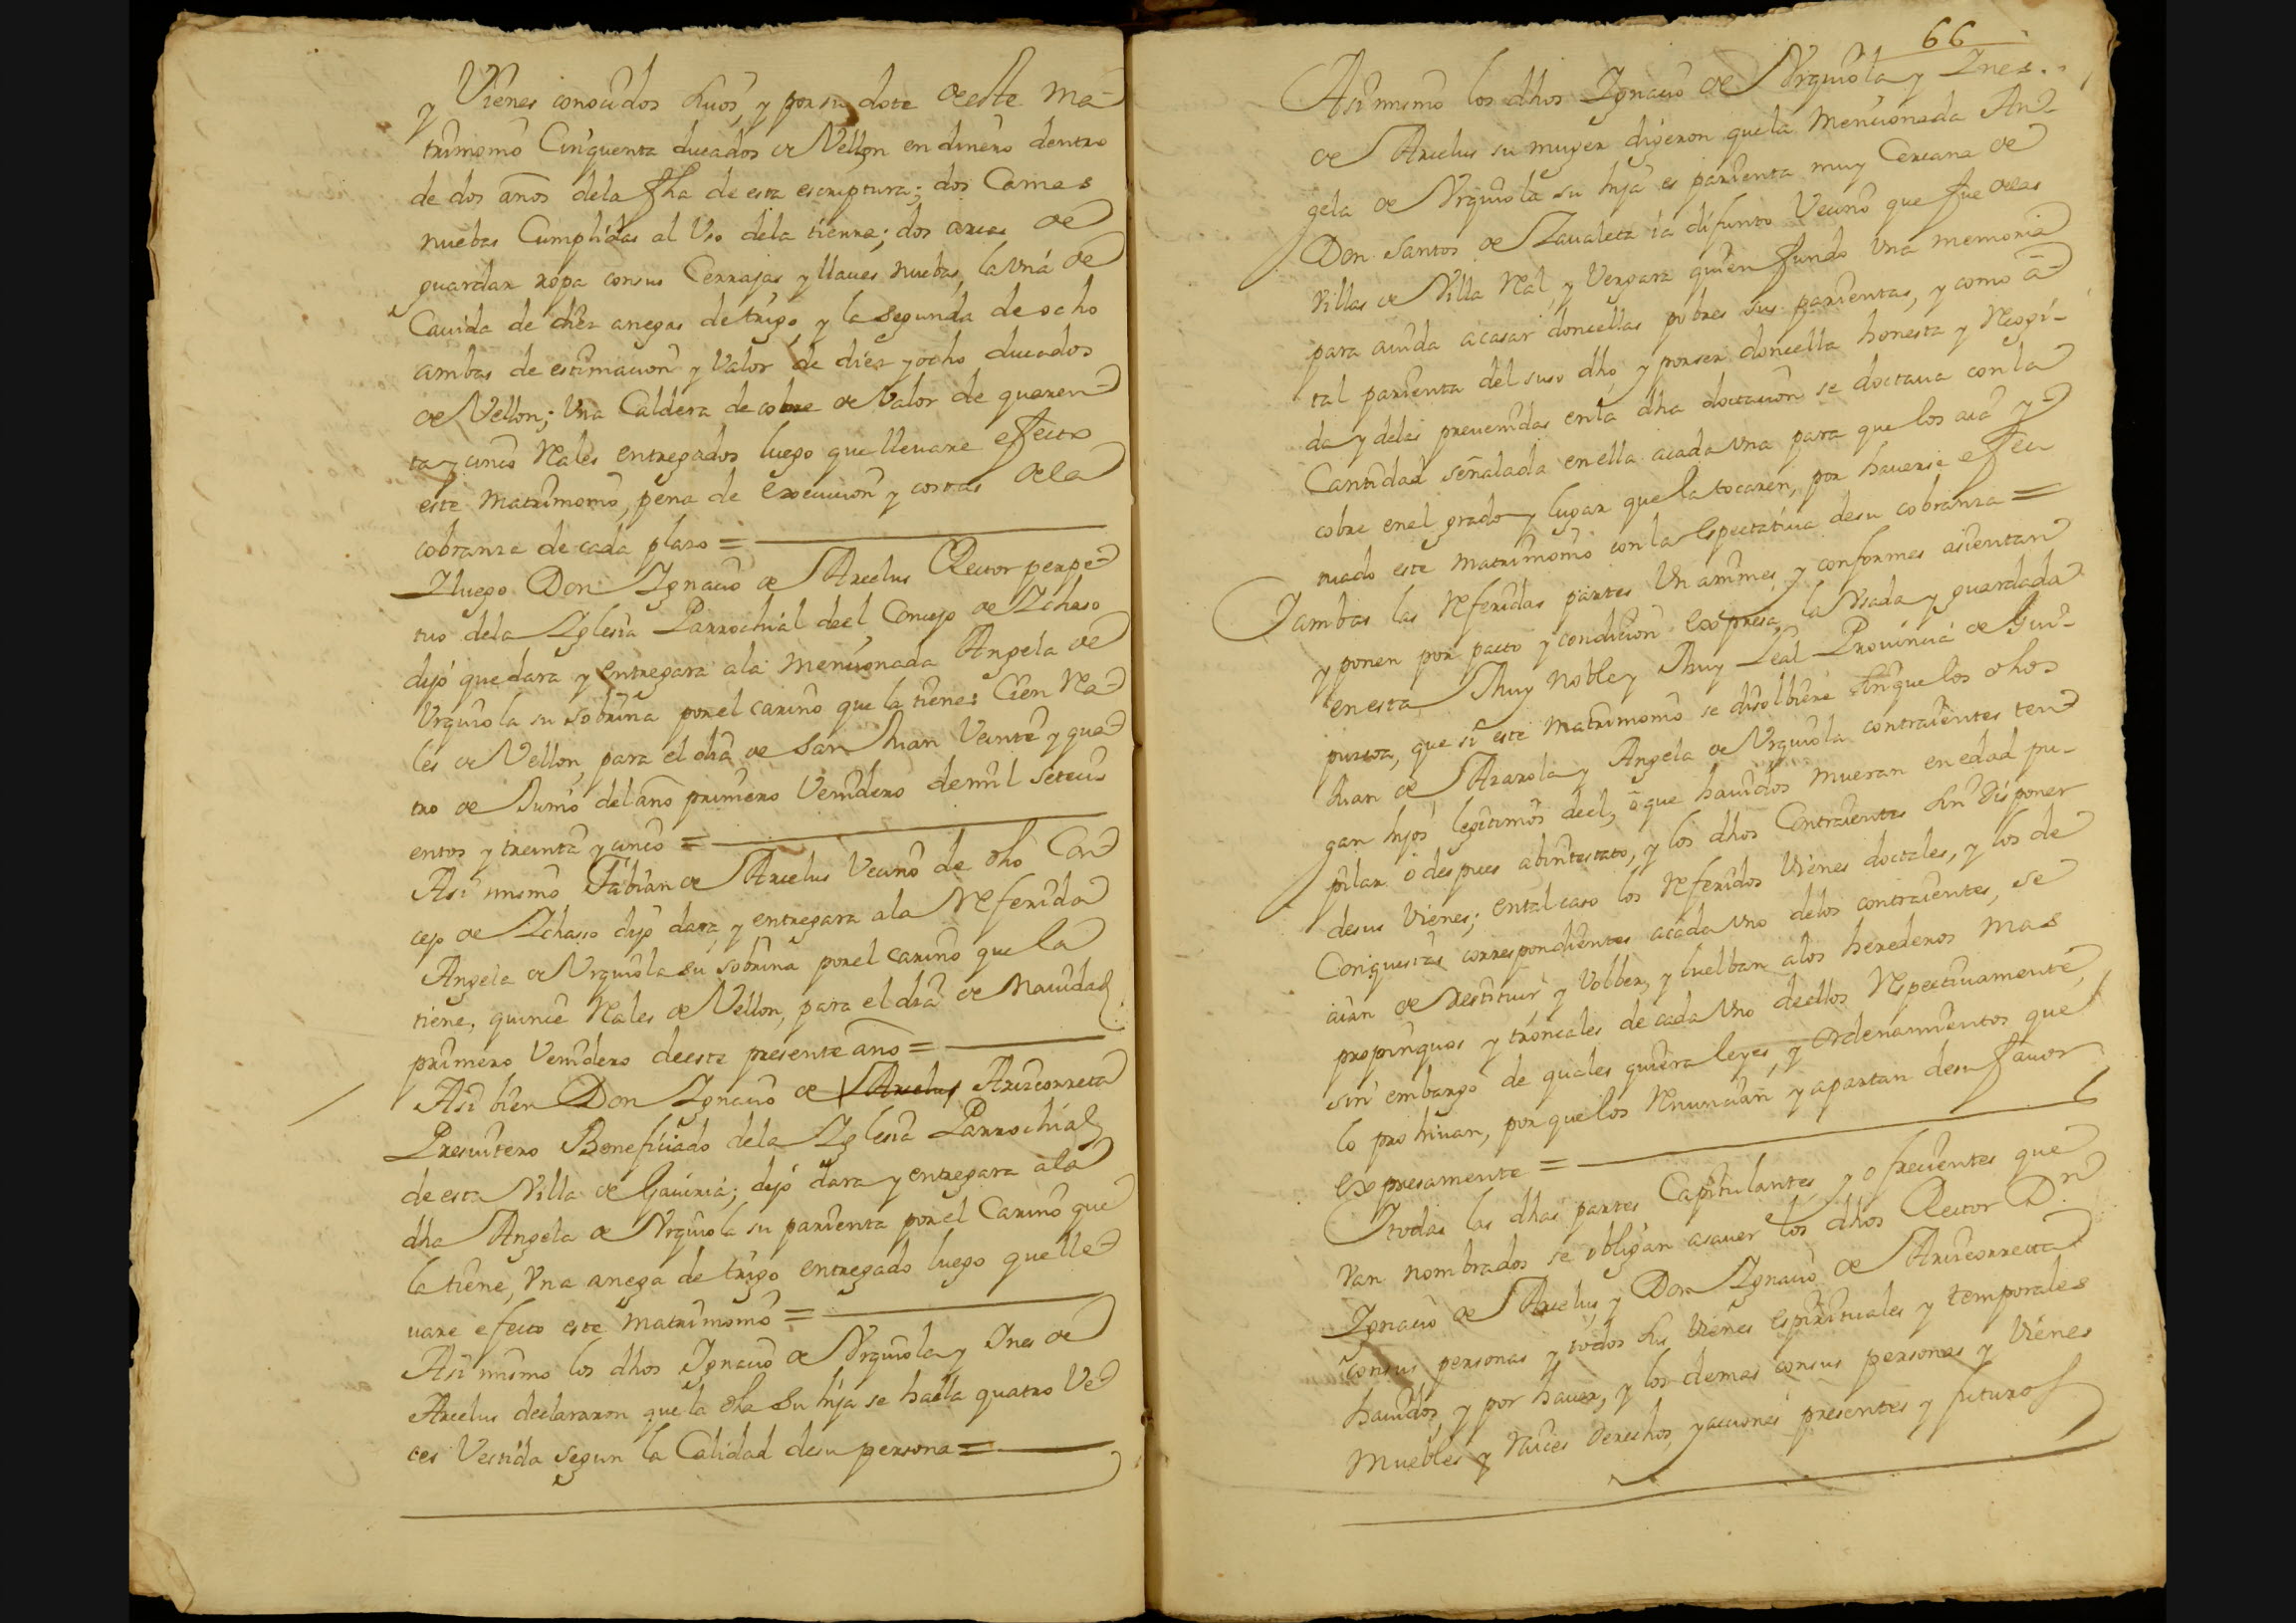 y Vienes conocidos suios, y por su dote de este ma-
trimonio Cinquenta ducados de Vellon en dinero dentro
de dos años dela fha de esta escriptura; dos Camas
nuebas Cumplidas al Vso dela tierra; dos arcas de
guardar ropa consus Cerrajas y llaues nuebas, la Vna de
Cauida de diez anegas de trigo, y la segunda de ocho
ambas de estimacion y Valor de diez y ocho ducados
de Vellon; Vna Caldera de cobre de Valor de quaren-
ta y cinco Rales entregados luego que lleuare effecto
este Matrimonio, pena de execucion y costas dela
cobranza de cada plazo =
Yluego Don Ignacio de Arcelus Rector perpe-
tuo dela Iglesia Parrochial deel Concejo de Ichaso
dijó que dara y entregara ala mencionada Angela de
Vrquiola su sobrina porel cariño que la tiene: Cien Ra-
les de Vellon, para el dia de San Juan Veinte y qua-
tro de Junio del año primero Venidero demil seteci-
entos y treinta y cinco =
Asi mismo Fabian de Arcelus Vecino de dho Con-
cejo de Ichasso dijo dara, y entregara ala Referida
Angela de Vrquiola su sobrina porel cariño que la
tiene, quince Rales de Vellon, para el dia de Nauidad
primero Venidero deeste presente año =
Asi bien Don Ignacio de Arcelus Arizcorreta
Presuitero Beneficiado dela Iglesia Parrochial
de esta Villa de Gauiria; dijó dara y entregara ala
dha Angela de Vrquiola su parienta porel Cariño que
la tiene, Vna anega de trigo entregado luego que lle-
uare efecto este Matrimonio =
Asi mismo los dhos Ignacio de Vrquiola y Ines de
Arcelus declararon que la dha su hija se halla quatro Ve-
ces Vestida segun la Calidad desu persona =
66
Asimismo los dhos Ignacio de Vrquiola y Ines
de Arcelus su muger digeron que la mencionada An-
gela de Vrquiola su hija es parienta muy Cercana de
Don Santos de Zaualeta ia difunto Vecino que fue delas
Villas de Villa Ral, y Vergara quien fundo Vna memoria
para aiuda a casar doncellas pobres sus parientas, y como a
tal parienta del suso dho, y porser doncella honesta y Recogi-
da y delas preuenidas enla dha dotacion se doctaua con la
Cantidad señalada enella acada Vna para que los aia y
cobre enel grado y lugar que la tocaren, por hauerse efec-
tuado este Matrimonio con la espectatiua desu cobranza =
Yambas las Referidas partes Vnanimes, y conformes asientan
y ponen por pacto y condicion expresa, la Vsada y guardada
enesta Muy Noble y Muy Leal Prouincia de Gui-
puzcoa, que si este Matrimonio se disolbiere sin que los dhos
Juan de Azarola y Angela de Vrquiola contraientes ten-
gan hijos legitimos deel, o que hauidos mueran en edad pu-
pilar o despues abintestato, y los dhos Contraientes sin disponer
desus Vienes; ental caso los Referidos Vienes doctales, y los de
Conquistas correspondientes acada Vno delos contraientes, se
aian de Restituir y Volber, y buelban alos herederos mas
propinquos y troncales de cada Vno deellos Respectiuamente,
sin embargo de quales quiera leyes, y Ordenamientos que
lo prohiuan, por que los Renuncian y apartan desu fauor
expresamente =
Ytodas las dhas partes Capitulantes, y ofrecientes que
van nombrados se obligan asauer los dhos Rector Dn
Ignacio de Arcelus, y Don Ignacio de Arizcorreta
consus personas y todos sus Vienes espirituales y temporales
hauidos, y por hauer, y los demas consus personas y Vienes
Muebles y Raices derechos, y acciones presentes y futuros